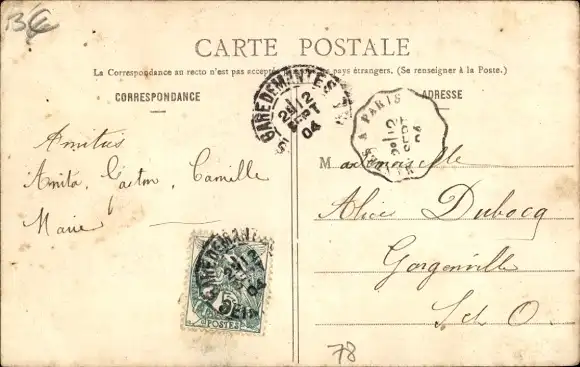 BC
CARTE POSTALE
La Correspondance au recto n'est pas acceptée pays étrangers. (Se renseigner à la Poste.)
CORRESPONDANCE
ADRESSE
GARE DE MANTES
2E 12
SEPT
04
A PARIS
2E 12
SEPT
04
Amitiés
Anita, Gaston, Camille
Marie
Mademoiselle
Alice Dubocq
Gargenville
S et O.
GARE DE MANTES
04
5
POSTES
78